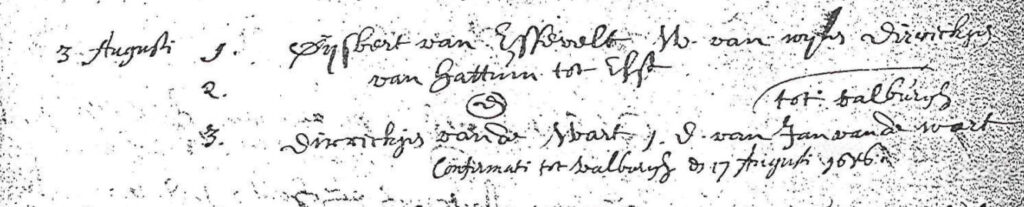 3 Augusti 1. Gijsbert van Essevelt W. van wijlen Dirrickjen
van Hattum tot Elst
2.
tot valburgh
3. Dirrickjen vande Wart j. d. van Jan vande wart
Confirmati tot valburgh den 17 Augusti 1686